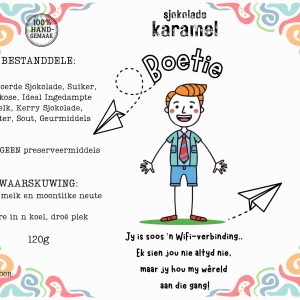 100%
HAND-
GEMAAK
BESTANDDELE:
oerde Sjokolade, Suiker,
kose, Ideal Ingedampte
elk, Kerry Sjokolade,
ter, Sout, Geurmiddels
GEEN preserveermiddels
WAARSKUWING:
melk en moontlike neute
re in n koel, droë plek
120g
sjokolade
karamel
Boetie
Jy is soos 'n WiFi-verbinding..
Ek sien jou nie altyd nie,
maar jy hou my wêreld
aan die gang!